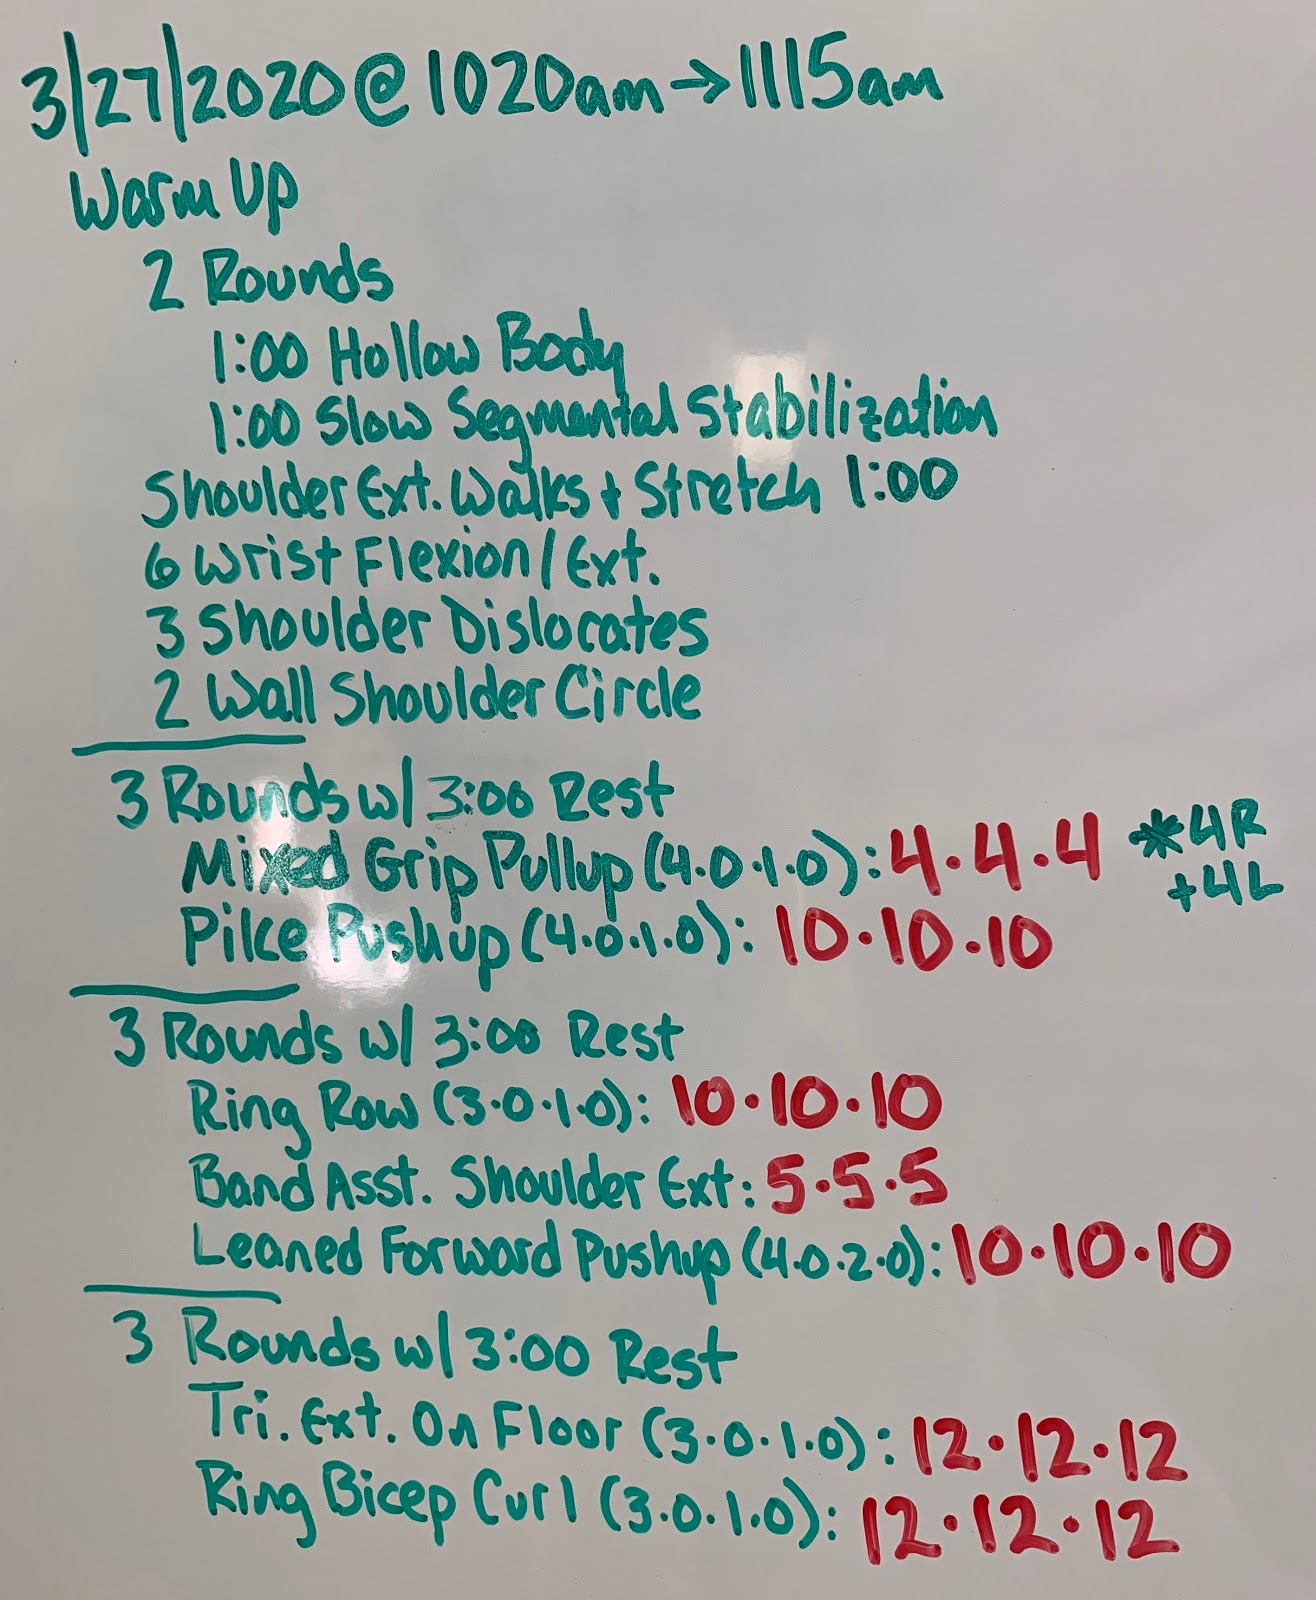 3/27/2020 @ 1020am → 1115am
Warm Up
2 Rounds
1:00 Hollow Body
1:00 Slow Segmental Stabilization
Shoulder Ext. Walks + Stretch 1:00
6 Wrist Flexion/Ext.
3 Shoulder Dislocates
2 Wall Shoulder Circle
3 Rounds w/ 3:00 Rest
Mixed Grip Pullup (4.0.1.0): 4.4.4 *4R
+4L
Pike Pushup (4.0.1.0): 10.10.10
3 Rounds w/ 3:00 Rest
Ring Row (3.0.1.0): 10.10.10
Band Asst. Shoulder Ext: 5.5.5
Leaned Forward Pushup (4.0.2.0): 10.10.10
3 Rounds w/ 3:00 Rest
Tri. Ext. On Floor (3.0.1.0): 12.12.12
Ring Bicep Curl (3.0.1.0): 12.12.12